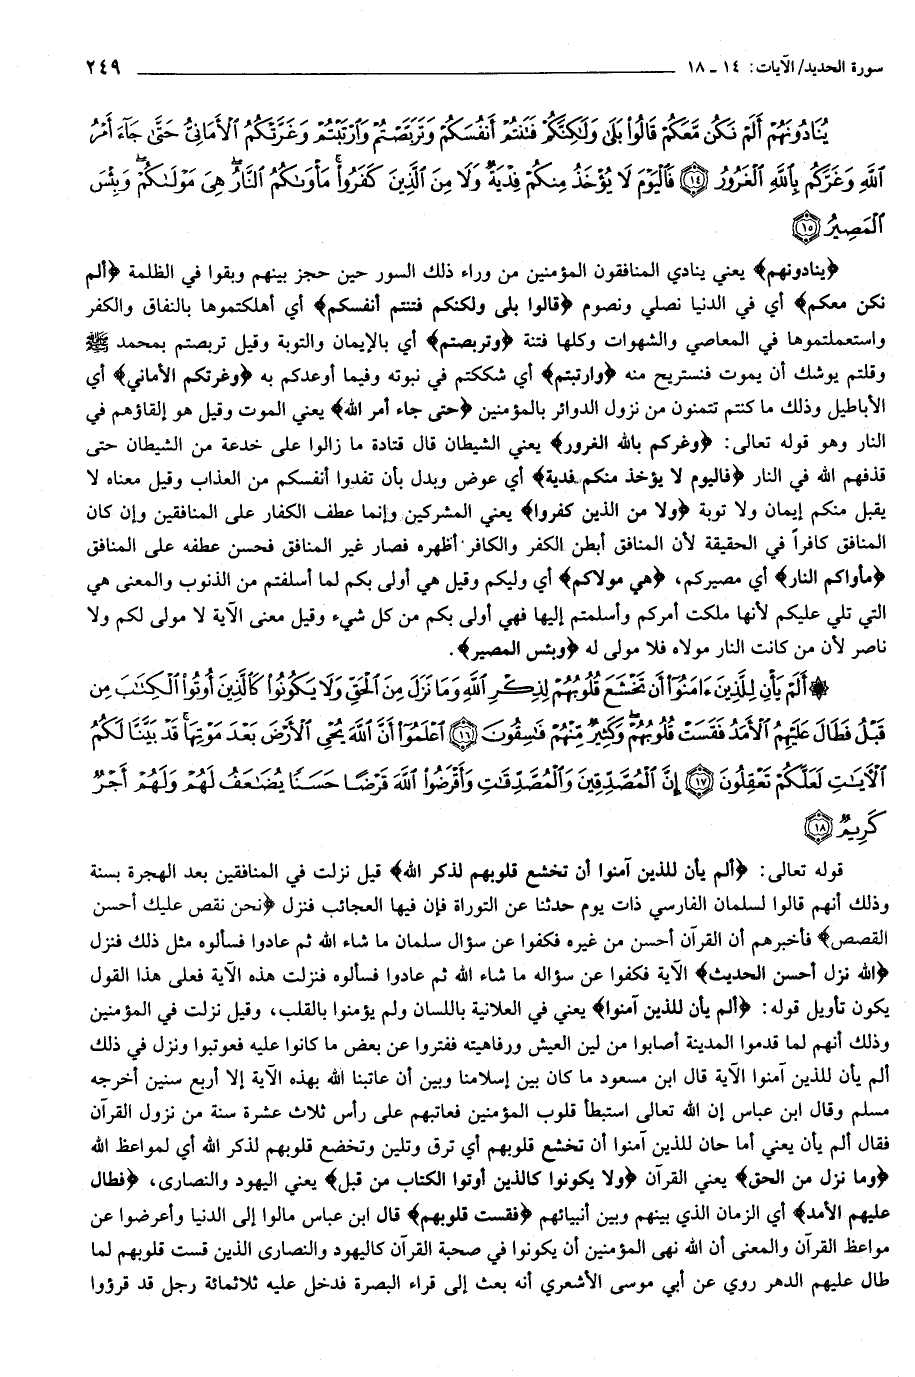 سورة الحديد/ الآيات: ١٤ - ١٨ ٢٤٩
يُنَادُونَهُمْ أَلَمْ نَكُن مَّعَكُمْ قَالُوا۟ بَلَىٰ وَلَٰكِنَّكُمْ فَتَنتُمْ أَنفُسَكُمْ وَتَرَبَّصْتُمْ وَٱرْتَبْتُمْ وَغَرَّتْكُمُ ٱلْأَمَانِىُّ حَتَّىٰ جَآءَ أَمْرُ
ٱللَّهِ وَغَرَّكُم بِٱللَّهِ ٱلْغَرُورُ ﴿١٤﴾ فَٱلْيَوْمَ لَا يُؤْخَذُ مِنكُمْ فِدْيَةٌ وَلَا مِنَ ٱلَّذِينَ كَفَرُوا۟ۚ مَأْوَىٰكُمُ ٱلنَّارُۖ هِىَ مَوْلَىٰكُمْۖ وَبِئْسَ
ٱلْمَصِيرُ ﴿١٥﴾
﴿ينادونهم﴾ يعني ينادي المنافقون المؤمنين من وراء ذلك السور حين حجز بينهم وبقوا في الظلمة ﴿ألم
نكن معكم﴾ أي في الدنيا نصلي ونصوم ﴿قالوا بلى ولكنكم فتنتم أنفسكم﴾ أي أهلكتموها بالنفاق والكفر
واستعملتموها في المعاصي والشهوات وكلها فتنة ﴿وتربصتم﴾ أي بالإيمان والتوبة وقيل تربصتم بمحمد ﷺ
وقلتم يوشك أن يموت فنستريح منه ﴿وارتبتم﴾ أي شككتم في نبوته وفيما أوعدكم به ﴿وغرتكم الأماني﴾ أي
الأباطيل وذلك ما كنتم تتمنون من نزول الدوائر بالمؤمنين ﴿حتى جاء أمر الله﴾ يعني الموت وقيل هو إلقاؤهم في
النار وهو قوله تعالى: ﴿وغركم بالله الغرور﴾ يعني الشيطان قال قتادة ما زالوا على خدعة من الشيطان حتى
قذفهم الله في النار ﴿فاليوم لا يؤخذ منكم فدية﴾ أي عوض وبدل بأن تفدوا أنفسكم من العذاب وقيل معناه لا
يقبل منكم إيمان ولا توبة ﴿ولا من الذين كفروا﴾ يعني المشركين وإنما عطف الكفار على المنافقين وإن كان
المنافق كافراً في الحقيقة لأن المنافق أبطن الكفر والكافر أظهره فصار غير المنافق فحسن عطفه على المنافق
﴿مأواكم النار﴾ أي مصيركم، ﴿هي مولاكم﴾ أي وليكم وقيل هي أولى بكم لما أسلفتم من الذنوب والمعنى هي
التي تلي عليكم لأنها ملكت أمركم وأسلمتم إليها فهي أولى بكم من كل شيء وقيل معنى الآية لا مولى لكم ولا
ناصر لأن من كانت النار مولاه فلا مولى له ﴿وبئس المصير﴾.
۞ أَلَمْ يَأْنِ لِلَّذِينَ ءَامَنُوٓا۟ أَن تَخْشَعَ قُلُوبُهُمْ لِذِكْرِ ٱللَّهِ وَمَا نَزَلَ مِنَ ٱلْحَقِّ وَلَا يَكُونُوا۟ كَٱلَّذِينَ أُوتُوا۟ ٱلْكِتَٰبَ مِن
قَبْلُ فَطَالَ عَلَيْهِمُ ٱلْأَمَدُ فَقَسَتْ قُلُوبُهُمْۖ وَكَثِيرٌ مِّنْهُمْ فَٰسِقُونَ ﴿١٦﴾ ٱعْلَمُوٓا۟ أَنَّ ٱللَّهَ يُحْىِ ٱلْأَرْضَ بَعْدَ مَوْتِهَاۚ قَدْ بَيَّنَّا لَكُمُ
ٱلْءَايَٰتِ لَعَلَّكُمْ تَعْقِلُونَ ﴿١٧﴾ إِنَّ ٱلْمُصَّدِّقِينَ وَٱلْمُصَّدِّقَٰتِ وَأَقْرَضُوا۟ ٱللَّهَ قَرْضًا حَسَنًا يُضَٰعَفُ لَهُمْ وَلَهُمْ أَجْرٌ
كَرِيمٌ ﴿١٨﴾
قوله تعالى: ﴿ألم يأن للذين آمنوا أن تخشع قلوبهم لذكر الله﴾ قيل نزلت في المنافقين بعد الهجرة بسنة
وذلك أنهم قالوا لسلمان الفارسي ذات يوم حدثنا عن التوراة فإن فيها العجائب فنزل ﴿نحن نقص عليك أحسن
القصص﴾ فأخبرهم أن القرآن أحسن من غيره فكفوا عن سؤال سلمان ما شاء الله ثم عادوا فسألوه مثل ذلك فنزل
﴿الله نزل أحسن الحديث﴾ الآية فكفوا عن سؤاله ما شاء الله ثم عادوا فسألوه فنزلت هذه الآية فعلى هذا القول
يكون تأويل قوله: ﴿ألم يأن للذين آمنوا﴾ يعني في العلانية باللسان ولم يؤمنوا بالقلب، وقيل نزلت في المؤمنين
وذلك أنهم لما قدموا المدينة أصابوا من لين العيش ورفاهيته ففتروا عن بعض ما كانوا عليه فعوتبوا ونزل في ذلك
ألم يأن للذين آمنوا الآية قال ابن مسعود ما كان بين إسلامنا وبين أن عاتبنا الله بهذه الآية إلا أربع سنين أخرجه
مسلم وقال ابن عباس إن الله تعالى استبطأ قلوب المؤمنين فعاتبهم على رأس ثلاث عشرة سنة من نزول القرآن
فقال ألم يأن يعني أما حان للذين آمنوا أن تخشع قلوبهم أي ترق وتلين وتخضع قلوبهم لذكر الله أي لمواعظ الله
﴿وما نزل من الحق﴾ يعني القرآن ﴿ولا يكونوا كالذين أوتوا الكتاب من قبل﴾ يعني اليهود والنصارى، ﴿فطال
عليهم الأمد﴾ أي الزمان الذي بينهم وبين أنبيائهم ﴿فقست قلوبهم﴾ قال ابن عباس مالوا إلى الدنيا وأعرضوا عن
مواعظ القرآن والمعنى أن الله نهى المؤمنين أن يكونوا في صحبة القرآن كاليهود والنصارى الذين قست قلوبهم لما
طال عليهم الدهر روي عن أبي موسى الأشعري أنه بعث إلى قراء البصرة فدخل عليه ثلاثمائة رجل قد قرؤوا